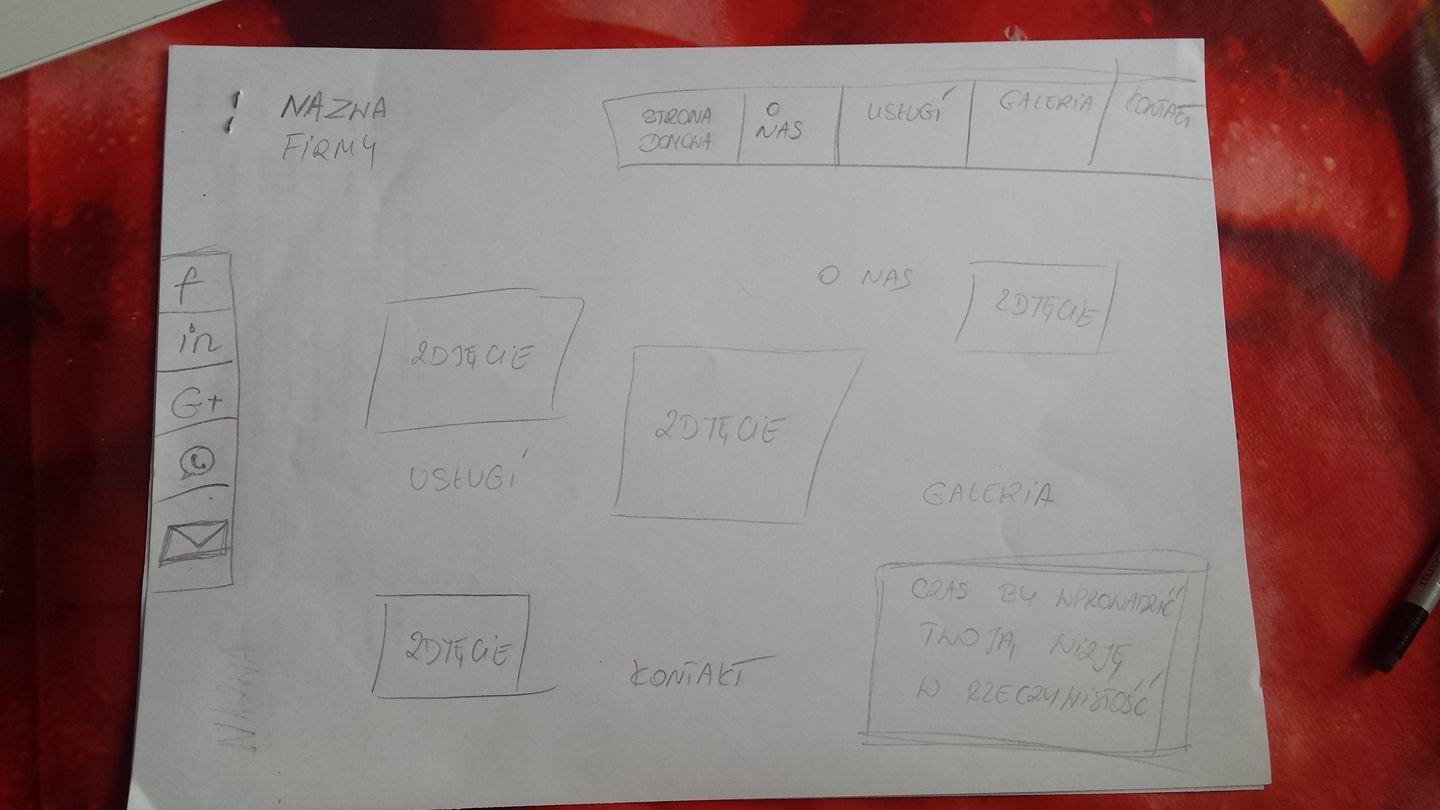 NAZWA
FIRMY
STRONA
DOMOWA
O
NAS
USŁUGI
GALERIA
KONTAKT
f
in
G+
O NAS
ZDJĘCIE
ZDJĘCIE
ZDJĘCIE
USŁUGI
GALERIA
ZDJĘCIE
KONTAKT
CZAS BY WPROWADZIĆ
TWOJĄ WIZJĘ
W RZECZYWISTOŚĆ